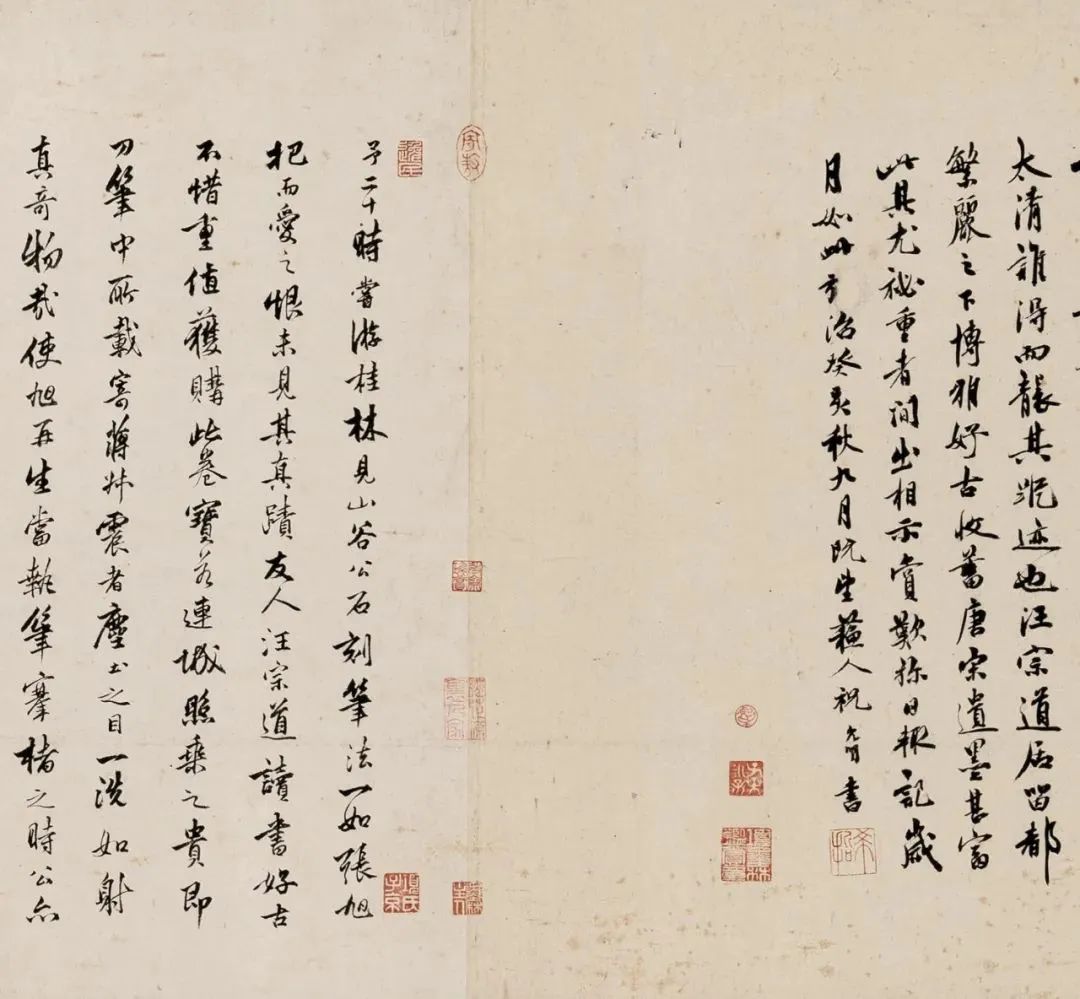 太清誰得而襲其軌迹也汪宗道居留都
繁麗之下博雅好古收蓄唐宋遺墨甚富
此其尤祕重者間出相示賞歎彌日輒記歲
月如此弘治癸亥秋九月既望蘇人祝允明書
予二十時嘗游桂林見山谷公石刻筆法一如張旭
把而愛之恨未見其真蹟友人汪宗道讀書好古
不惜重值獲購此卷寶若連城照乘之貴即
刀筆中所載寄蔣艸震者塵土之目一洗如射
真奇物哉使旭再生當執筆搴楮之時公亦
項氏子京